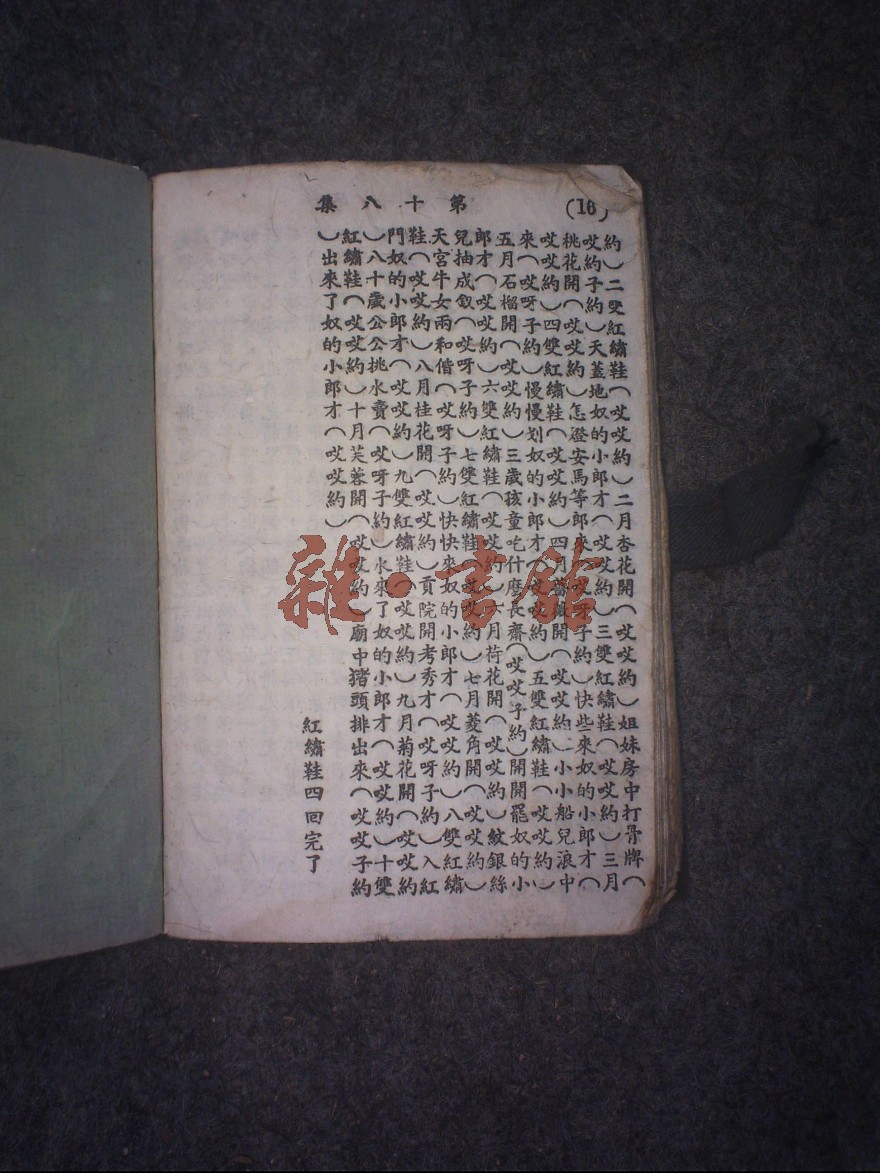 (16)
第十八集
約(二雙紅繡鞋(哎哎約)二月杏花開(哎哎約)姐妹房中打骨牌(
哎約子約)天蓋地奴的小郎才(哎哎約)三雙紅繡鞋(哎哎約)三月
桃花開(哎哎約)怎燈安馬等郎來(哎呀子約)快些來奴的小郎才(
哎哎約)四雙紅繡鞋(哎哎約)四月薔薇開(哎哎約)小小船兒浪中
來(哎呀子約)慢慢划奴的小郎才(哎哎約)五雙紅繡鞋(哎哎約)
五月石榴開(哎哎約)三歲孩童吃什麼長齋(哎哎子約)開開罷奴的小
郎才(哎哎約)六雙紅繡鞋(哎哎約)六月荷花開(哎哎約)紋銀絲
兒抽成釵(哎呀子約)七雙紅繡鞋(哎哎約)七月菱角開(哎哎約)
天宮牛女兩和偕(哎呀子約)快快來奴的小郎才(哎哎約)八雙紅繡
鞋(哎哎約)八月桂花開(哎哎約)貢院開考秀才(哎呀子約)入紅
門奴的小郎才(哎哎約)九雙紅繡鞋(哎哎約)九月菊花開(哎哎約
)八十歲公公挑水賣(哎呀子約)水來了奴的小郎才(哎哎約)十雙
紅繡鞋(哎哎約)十月芙蓉開(哎哎約)廟中猪頭排出來(哎哎子約
)出來了奴的小郎才(哎哎約)
紅繡鞋四回完了
雜·書館